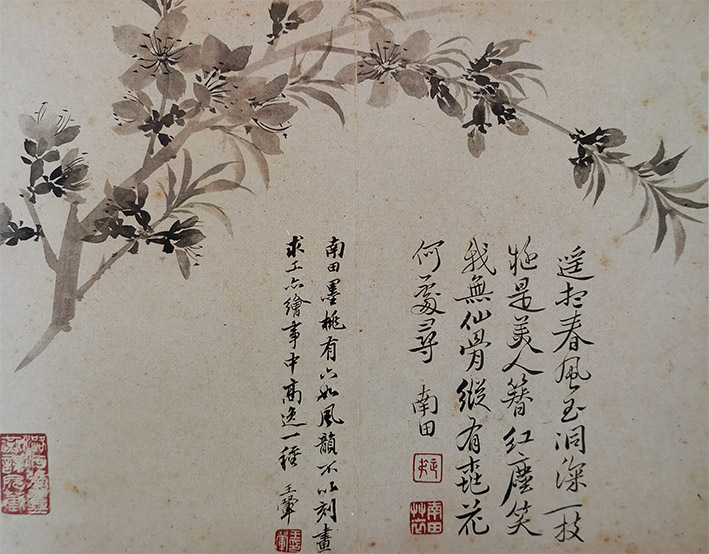 遥想春風玉洞深一枝
是美人簪紅塵笑
我無仙骨縱有桃花
何處尋 南田
正叔
南田艸衣
南田墨桃有六如風韻不以刻畫
求工亦繪事中高逸一種 王翬